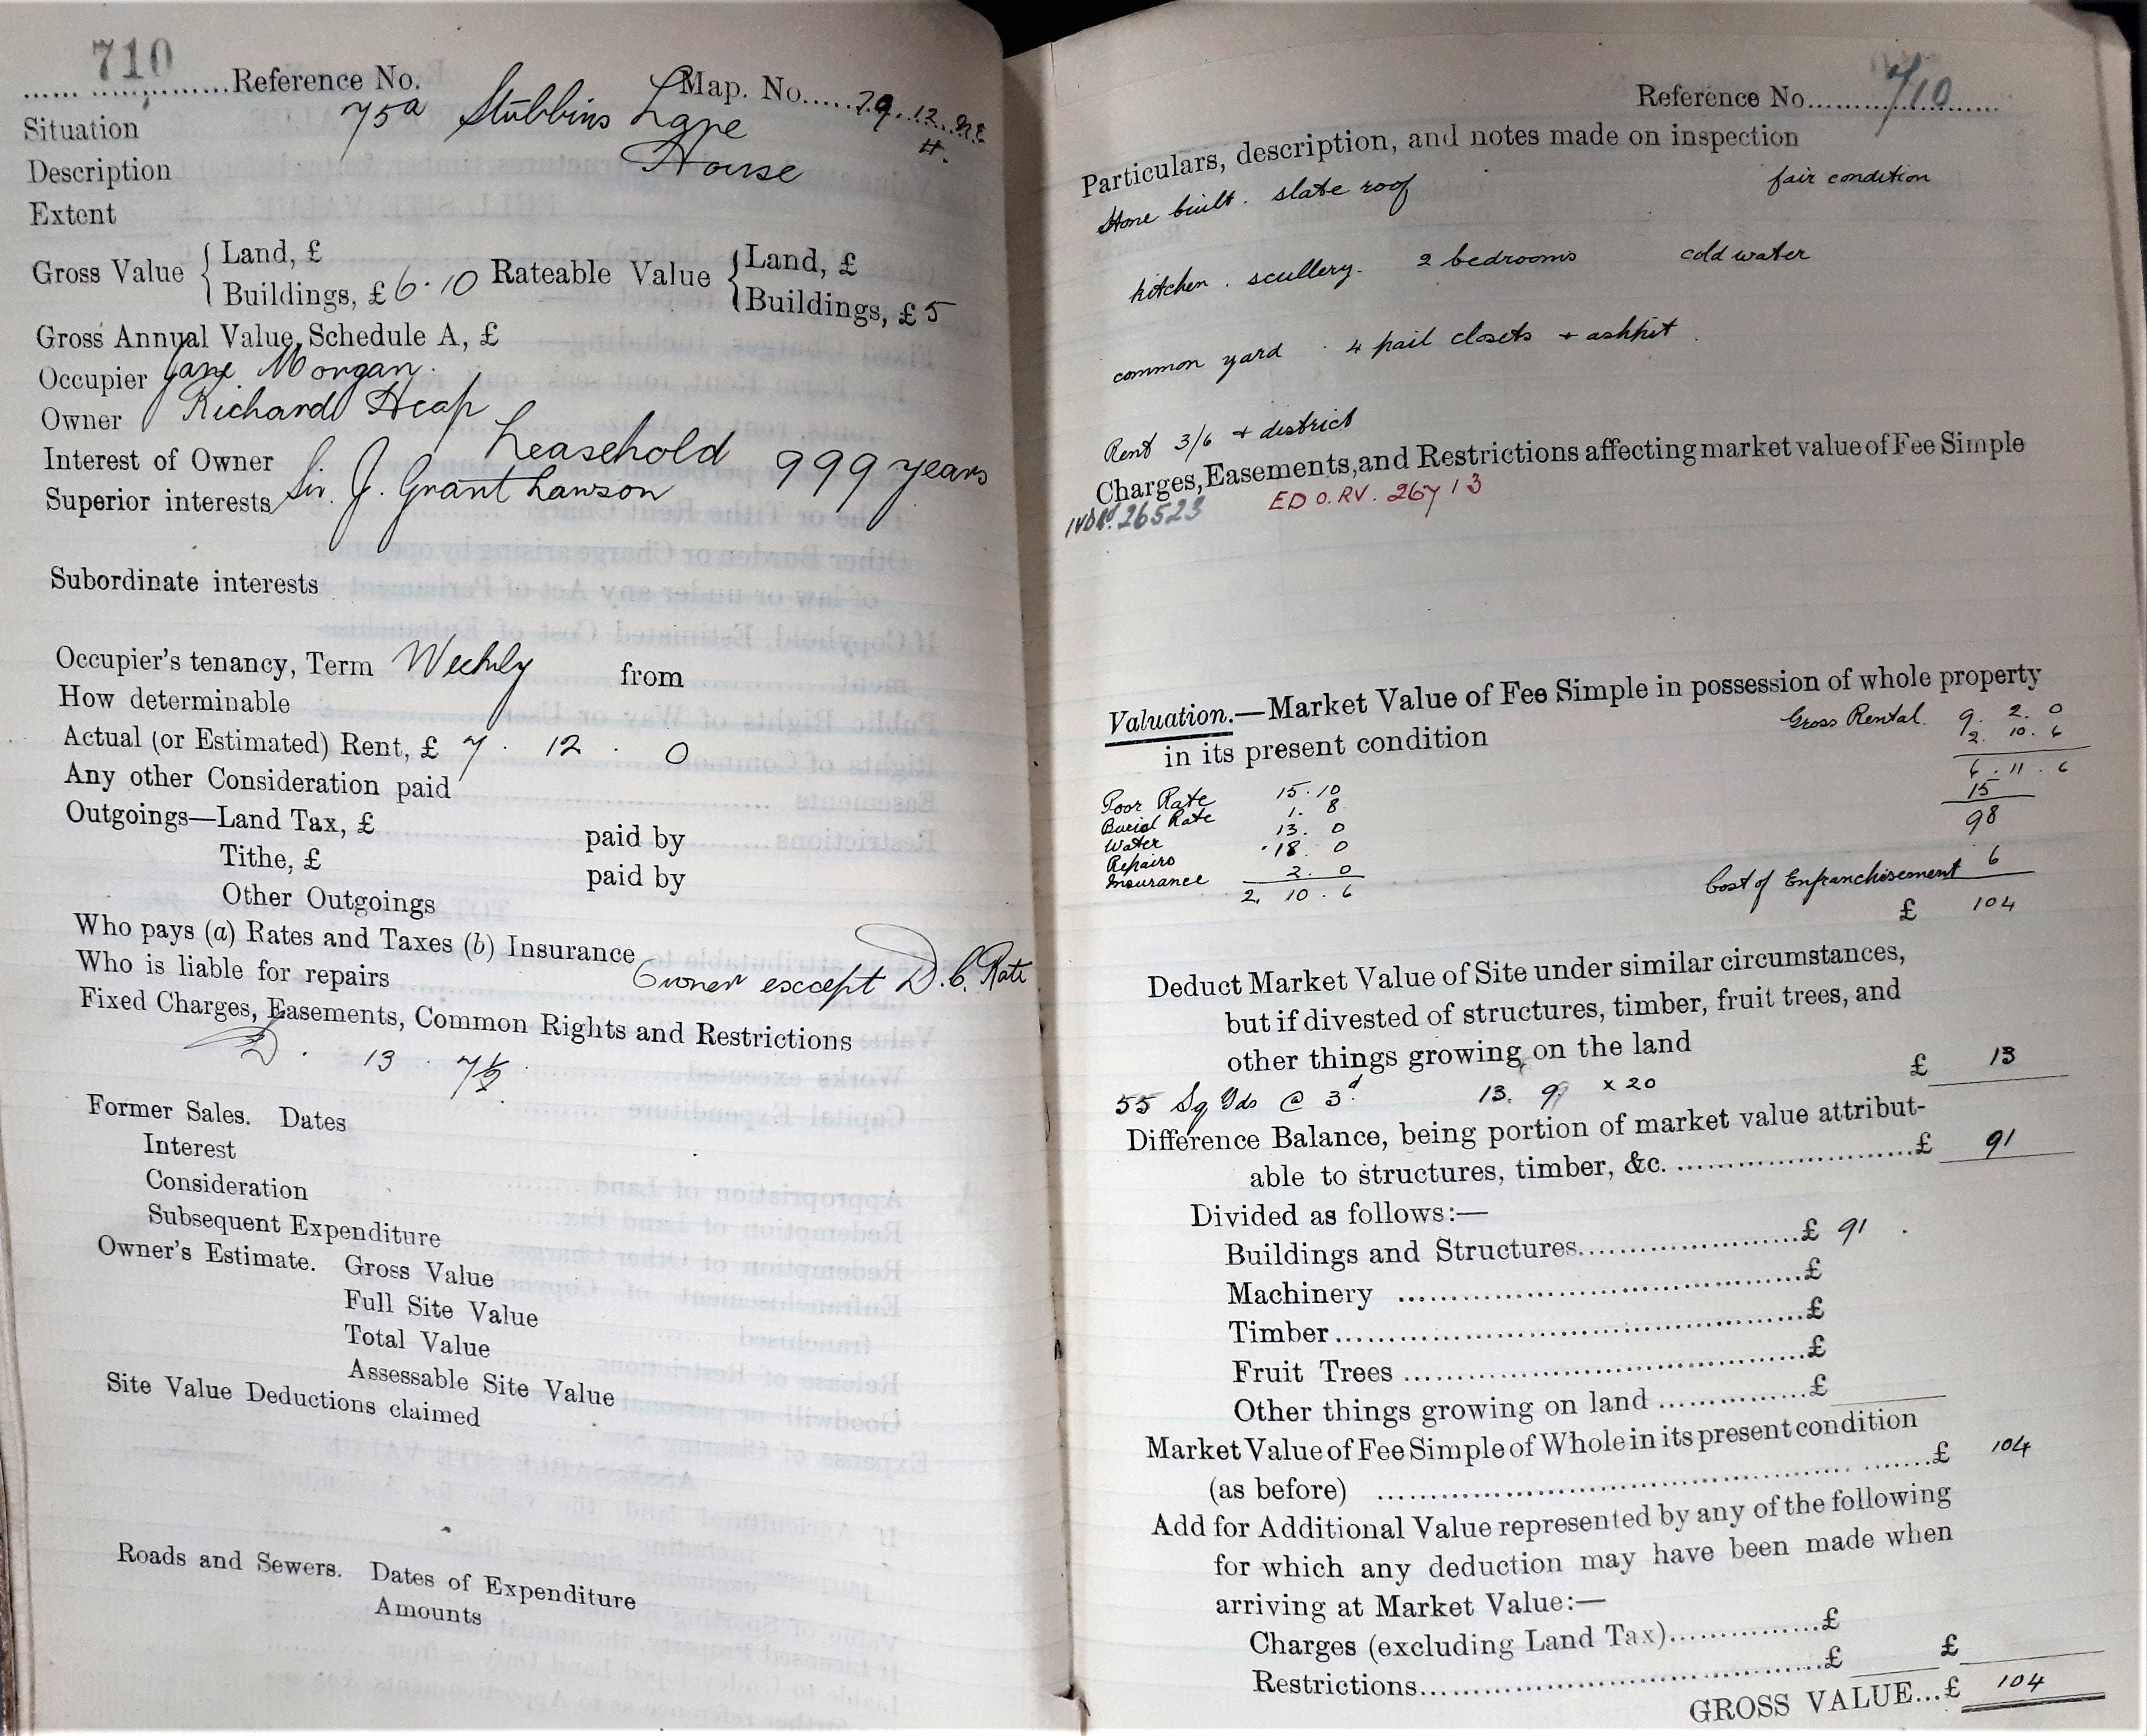 710
Reference No. Map. No. 79.12 N.E.
Situation 75a Stubbins Lane H.
Description House
Extent
Gross Value { Land, £ Rateable Value { Land, £
Buildings, £ 6.10 Buildings, £ 5
Gross Annual Value, Schedule A, £
Occupier Jane Morgan.
Owner Richard Heap
Interest of Owner Leasehold 999 years
Superior interests Sir. J. Grant Lawson
Subordinate interests
Occupier's tenancy, Term Weekly from
How determinable
Actual (or Estimated) Rent, £ 7. 12. 0
Any other Consideration paid
Outgoings—Land Tax, £ paid by
Tithe, £ paid by
Other Outgoings
Who pays (a) Rates and Taxes (b) Insurance
Who is liable for repairs Owner except D.C. Rate
Fixed Charges, Easements, Common Rights and Restrictions
D. 13. 7½
Former Sales. Dates
Interest
Consideration
Subsequent Expenditure
Owner's Estimate. Gross Value
Full Site Value
Total Value
Assessable Site Value
Site Value Deductions claimed
Roads and Sewers. Dates of Expenditure
Amounts
Reference No. 710
Particulars, description, and notes made on inspection
Stone built. slate roof fair condition
kitchen. scullery. 2 bedrooms cold water
common yard 4 pail closets + ashpit.
Rent 3/6 + district
Charges, Easements, and Restrictions affecting market value of Fee Simple
26523 ED O. RV. 26713
Valuation.—Market Value of Fee Simple in possession of whole property
in its present condition Gross Rental. 9. 2. 0
2. 10. 6
6. 11. 6
Poor Rate 15. 10 15
Burial Rate 1. 8 98
Water 13. 0
Repairs 18. 0
Insurance 2. 0 Cost of Enfranchisement 6
2. 10. 6 £ 104
Deduct Market Value of Site under similar circumstances,
but if divested of structures, timber, fruit trees, and
other things growing on the land £ 13
55 Sq Yds @ 3d 13. 9 x 20
Difference Balance, being portion of market value attribut-
able to structures, timber, &c. £ 91
Divided as follows:—
Buildings and Structures £ 91.
Machinery £
Timber £
Fruit Trees £
Other things growing on land £
Market Value of Fee Simple of Whole in its present condition
(as before) £ 104
Add for Additional Value represented by any of the following
for which any deduction may have been made when
arriving at Market Value:—
Charges (excluding Land Tax) £
Restrictions £ £
GROSS VALUE...£ 104